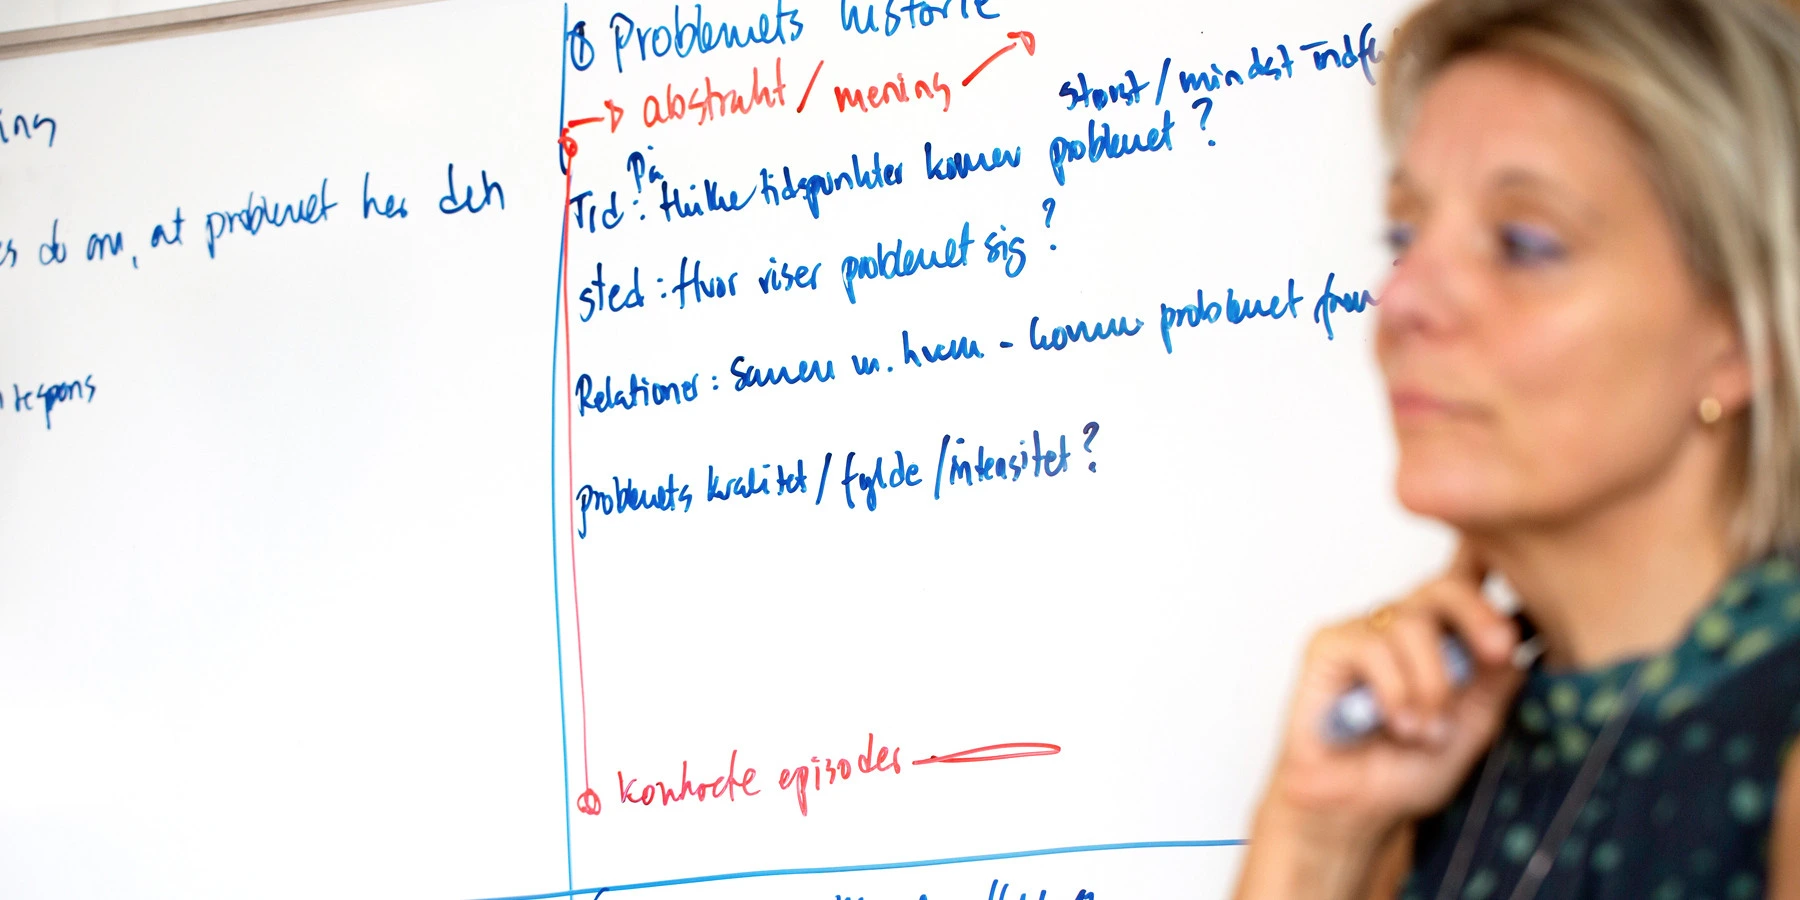 ing
at problemet har den
respons
① Problemets historie
abstrakt / mening
størst / mindst indfl
Tid : På Hvilke tidspunkter kommer problemet ?
sted : Hvor viser problemet sig ?
Relationer : Sammen m. hvem - kommer problemet frem
problemets kvalitet / fylde / intensitet ?
konkrete episoder